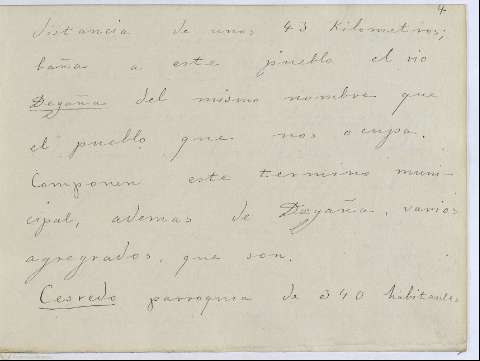 4
distancia de unos 43 Kilometros;
baña a este pueblo el rio
Degaña del mismo nombre que
el pueblo que nos ocupa.
Componen este termino muni-
cipal, ademas de Degaña, varios
agregrados, que son.
Cesredo parroquia de 340 habitantes